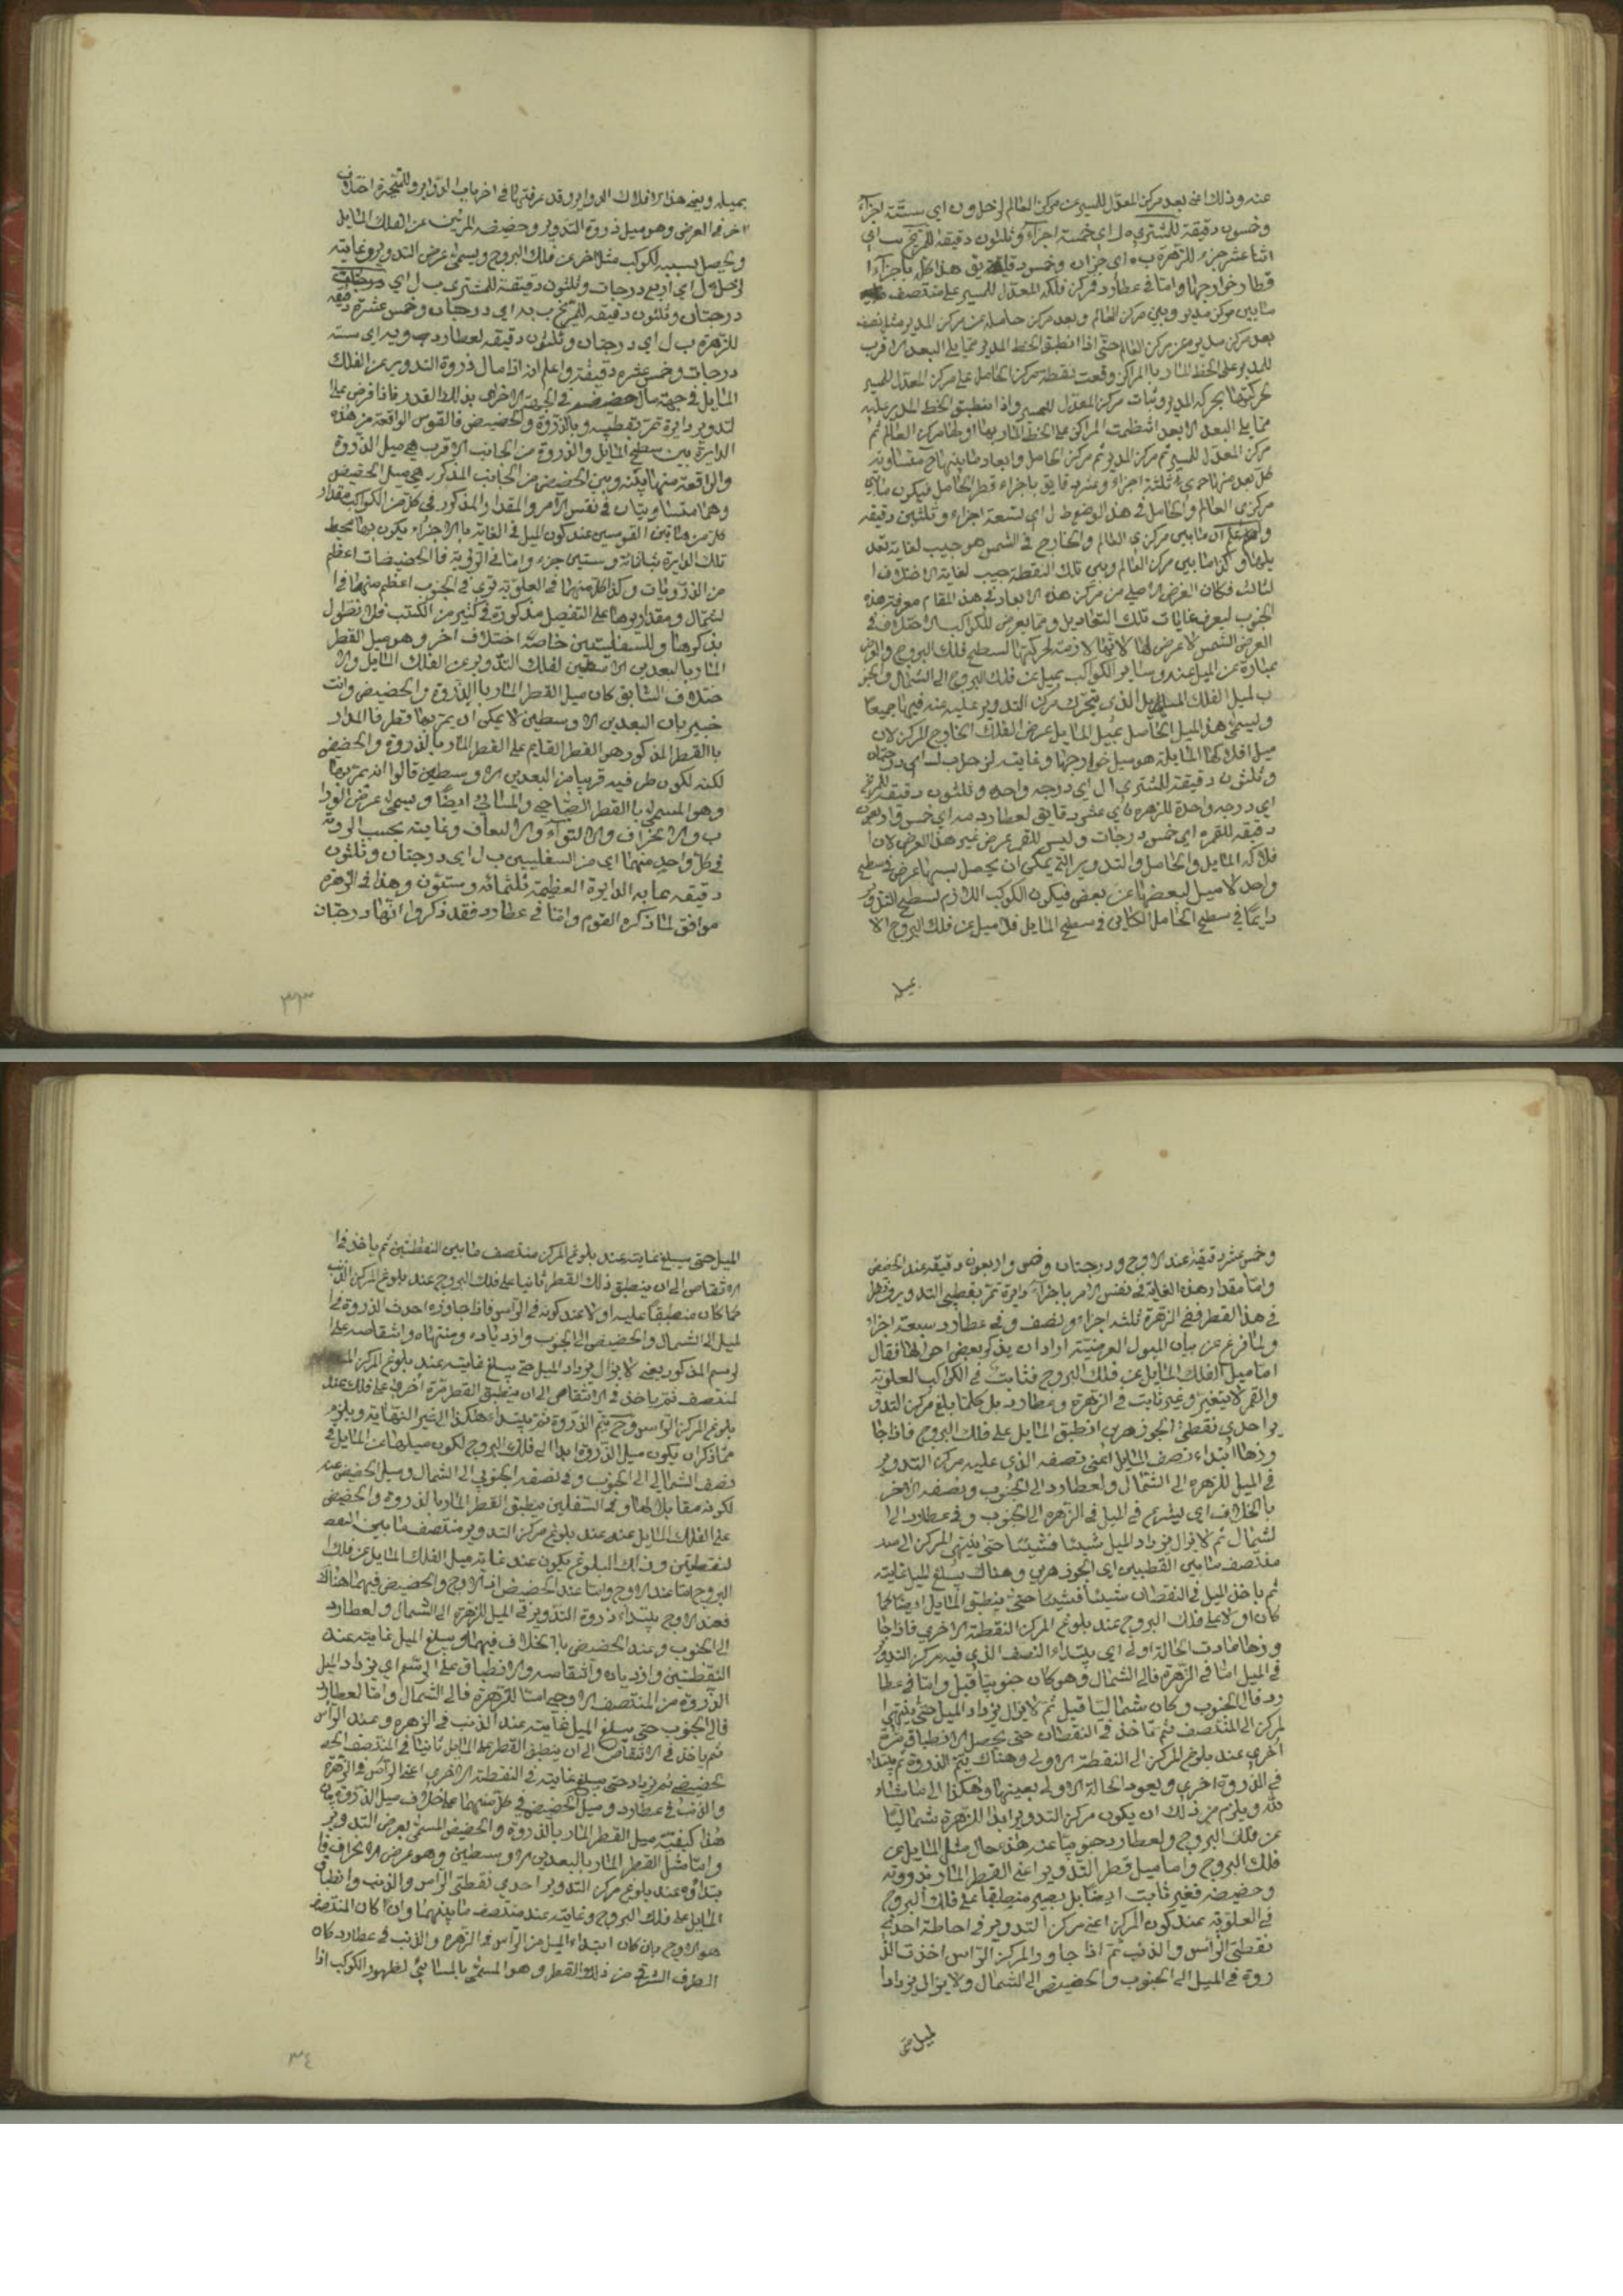 عنه وذلك اعنى بعد مركز المعدل للمسير عن مركز العالم لزحل و ن اى ستة اجزاء
وخمسون دقيقة للمشترى ه ل اى خمسة اجزاء وثلثون دقيقة للمريخ يب اى
اثنا عشر جزء للزهرة ب ه اى جزان وخمس دقايق هذا كله باجزاء ا
قطار خوارجها واما فى عطارد فمركز فلكه المعدل للمسير على منتصف
ما بين مركز مديره وبين مركز العالم وبعد مركز حامله عن مركز المدير مثل نصف
بعد مركز مديره عن مركز العالم حتى اذا انطبق الخط المدير مما يلى البعد الاقرب
للمدير على الخط المار بالمراكز وقعت نقطة مركز الحامل على مركز المعدل للمسير
لحركتها بحركة المدير وثبات مركز المعدل للمسير واذا انطبق الخط المدير عليه
مما يلى البعد الابعد انتظمت المراكز على الخط المار بها اولها مركز العالم ثم
مركز المعدل للمسير ثم مركز المدير ثم مركز الحامل وابعاد ما بينها ح متساوية
كل بعد منها ثلثة اجزاء وعشر دقايق باجزاء قطر الحامل فيكون ما بين
مركزى العالم والحامل فى هذا الوضع ط ل اى تسعة اجزاء وثلثين دقيقة
ان ما بين مركزى العالم والخارج فى الشمس هو جيب لغاية تعد
يلها وكذا ما بين مركز العالم وبين تلك النقطة جيب لغاية الاختلاف ا
لثالث فكان الغرض الاصلى من مركز هذه الابعاد فى هذا المقام معرفة هذه
الجيوب ليعرف غايات تلك التعاديل ومما يعرض للكواكب الاختلاف فى
العرض الشمس لا عرض لها لانها لازمة لحركتها لسطح فلك البروج والعرض
عبارة عن الميل عنه وساير الكواكب يميل عن فلك البروج الى الشمال والجنو
ب لميل الفلك المايل الذى يتحرك مركز التدوير عليه عنه فيها جميعا
ويسمى هذا الميل الحاصل بميل المايل عرض الفلك الخارج المركز لان
ميل افلاكها المايلة هو ميل خوارجها وغايته لزحل ب ل اى درجتان
وثلثون دقيقة للمشترى ا ل اى درجة واحدة وثلثون دقيقة للمريخ
اى درجة واحدة للزهرة اى عشر دقايق لعطارد مه اى خمس واربعون
دقيقة للقمر ه اى خمس درجات وليس للقمر عرض غير هذا العرض لان ا
فلاكه المايل والحامل والتدوير التى يمكن ان يحصل بسببها عرض فى سطح
واحد لا ميل لبعضها عن بعض فيكون الكوكب اللازم لسطح التدوير
دايما فى سطح الحامل الكاين فى سطح المايل فلا ميل عن فلك البروج الا
بميله
بميله وينحو هذا الافلاك الدواير وقد عرفتها فى اخر باب الدواير وللمتحيرة اختلاف
اخر فى العرض وهو ميل ذروة التدوير وحضيضه المرئيين عن الفلك المايل
ويحصل بسببه للكوكب مثل اخر عن فلك البروج ويسمى عرض التدوير وغايته
لزحل د ل اى اربع درجات وثلثون دقيقة للمشترى ب ل اى
درجتان وثلثون دقيقة للمريخ ب يه اى درجتان وخمس عشرة دقيقة
للزهرة ب ل اى درجتان وثلثون دقيقة لعطارد و يه اى ستة
درجات وخمس عشرة دقيقة واعلم انه اذا مال ذروة التدوير عن الفلك
المايل فى جهة مال حضيضه فى الجهة الاخرى بذلك القدر فاذا فرض على
لتدوير دايرة تمر بقطبيه وبالذروة والحضيض فالقوس الواقعة من هذه
الدايرة بين سطح المايل والذروة من الجانب الاقرب هى ميل الذروة
والواقعة منها بينه وبين الحضيض من الجانب المذكور هى ميل الحضيض
وهما متساويتان فى نفس الامر والمقدار المذكور فى كل من الكواكب مقدار
كل من هاتين القوسين عند كون الميل فى الغاية بالاجزاء يكون بها محيط
تلك الدايرة ثلثمائة وستين جزء واما فى الروية فالحضيضات اعظم
من الذرويات وكذا كل منهما فى العلوية ترى فى الجنوب اعظم منهما فى ا
لشمال ومقداريوها على التفصيل مذكورة فى كثير من الكتب فلا نطول
بذكرها وللسفليين خاصة اختلاف اخر وهو ميل القطر
المار بالبعدين الاوسطين لفلك التدوير عن الفلك المايل والا
ختلاف السابق كان ميل القطر المار بالذروة والحضيض وانت
خبير بان البعدين الاوسطين لا يمكن ان يمر بهما قطر فالمراد
بالقطر المذكور هو القطر القايم على القطر المار بالذروة والحضيض
لكنه لكون طرفيه قريبا من البعدين الاوسطين قالوا انه يمر بهما
وهو المسمى بالقطر الصباحى والمسائى ايضا ويسمى عرض الورا
ب والانحراف والالتواء والالتفاف وغايته بحسب الروية
فى كل واحد منهما اى من السفليين ب ل اى درجتان وثلثون
دقيقة بما به الدايرة العظيمة ثلثمائة وستون وهذا فى الزهرة
موافق لما ذكره القوم واما فى عطارد فقد ذكروا انها درجتان
٣٣
وخمس عشرة دقيقة عند الاوج ودرجتان وخمس واربعون دقيقة عند الحضيض
واما مقدار هذه الغاية فى نفس الامر باجزاء دايرة تمر بقطبى التدوير وبطرفى
فى هذا القطر ففى الزهرة ثلثة اجزاء ونصف وفى عطارد سبعة اجزاء
ولما فرغ عن بيان الميول العرضية اراد ان يذكر بعض احوالها فقال
اما ميل الفلك المايل عن فلك البروج فثابت فى الكواكب العلوية
والقمر لا يتغير وغير ثابت فى الزهرة وعطارد بل كلما بلغ مركز التدو
ير احدى نقطتى الجوزهرين انطبق المايل على فلك البروج فاذا جا
وزها ابتداء نصف المايل اعنى نصفه الذى عليه مركز التدوير
فى الميل للزهرة الى الشمال ولعطارد الى الجنوب ونصفه الاخر
بالخلاف اى يشرع فى الميل فى الزهرة الى الجنوب وفى عطارد الى ا
لشمال ثم لا يزال يزداد الميل شيئا فشيئا حتى ينتهى المركز الى
منتصف ما بين القطبين اى الجوزهرين وهناك يبلغ الميل غايته
ثم ياخذ الميل فى النقصان شيئا فشيئا حتى ينطبق المايل ايضا كما
كان اولا على فلك البروج عند بلوغ المركز النقطة الاخرى فاذا جا
وزها عادت الحالة اولى اى يبتداء النصف الذى فيه مركز التدوير
فى الميل اما فى الزهرة فالى الشمال وهو كان جنوبيا قبل واما فى عطا
رد فالى الجنوب وكان شماليا قبل ثم لا يزال يزداد الميل حتى ينتهى
لمركز الى المنتصف ثم تاخذ فى النقصان حتى يحصل الانطباق مرة
اخرى عند بلوغ المركز الى النقطة الاولى وهناك يتم الدورة ثم يبتداء
فى الدورة اخرى ويعود الحالة الاولى بعينها وهكذا الى ما شاء
لله ويلزم من ذلك ان يكون مركز التدوير ابدا للزهرة شماليا
عن فلك البروج ولعطارد جنوبيا عنه هذا حال مثل المايل عن
فلك البروج واما ميل قطر التدوير اعنى القطر المار بذروته
وحضيضه فغير ثابت ايضا بل يصير منطبقا على فلك البروج
فى العلوية عند كون المركز اعنى مركز التدوير فى احاطة احدى
نقطتى الراس والذنب ثم اذا جاوز المركز الراس اخذت الذ
روة فى الميل الى الجنوب والحضيض الى الشمال ولا يزال يزداد ا
لميل حتى
الميل حتى يبلغ غايته عند بلوغ المركز منتصف ما بين النقطتين ثم ياخذ فى ا
لانتقاص الى ان ينطبق ذلك القطر ثانيا على فلك البروج عند بلوغ المركز الذنب
كما كان منطبقا عليه اولا عند كونه فى الراس فاذا جاوزه اخذت الذروة فى ا
لميل الى الشمال والحضيض الى الجنوب وازدياده ومنتهاه وانتقاصه على ا
لرسم المذكور يعنى لا يزال يزداد الميل حتى يبلغ غايته عند بلوغ المركز
لمنتصف ثم ياخذ فى الانتقاص الى ان ينطبق القطر مرة اخرى على فلك عند
بلوغ المركز الراس وح يتم الدورة ثم يبتداء هكذا الى غير النهاية ويلزم
مما ذكر ان يكون ميل الذروة ابدا الى فلك البروج لكون ميلها عن المايل فى
نصف الشمالى الى الجنوب وفى نصفه الجنوبى الى الشمال وميل الحضيض عنه
لكونه مقابلا لها وفى السفليين منطبق القطر المار بالذروة والحضيض
على الفلك المايل عنه عند بلوغ مركز التدوير منتصف ما بين
لنقطتين وذلك البلوغ يكون عند غاية ميل الفلك المايل عن فلك ا
البروج اما عند الاوج واما عند الحضيض اذ الاوج والحضيض فيهما هناك
فعند الاوج يبتداء ذروة التدوير فى الميل للزهرة الى الشمال ولعطارد
الى الجنوب وعند الحضيض بالخلاف فيهما ويبلغ الميل غايته عند
النقطتين وازدياده وانتقاصه والانطباق على الرسم اى يزداد الميل
الذروة من المنتصف الاوجى اما للزهرة فالى الشمال واما لعطارد
فالى الجنوب حتى يبلغ الميل غايته عند الذنب فى الزهرة وعند الراس
ثم ياخذ فى الانتقاص الى ان ينطبق القطر على المايل ثانيا فى المنتصف الح
لحضيضى ثم يزداد حتى يبلغ غايته فى النقطة الاخرى اعنى الراس فى الزهرة
والذنب فى عطارد وميل الحضيض فى كل منهما على خلاف ميل الذروة
هذا كيفية ميل القطر المار بالذروة والحضيض المسمى بعرض التدوير
واما مثل القطر المار بالبعدين الاوسطين وهو عرض الانحراف فا
بتداؤه عند بلوغ مركز التدوير احدى نقطتى الراس والذنب وانطباق
المايل على فلك البروج وغايته عند منتصف ما بينهما وان كان المنتصف
هو الاوج بان كان ابتداء الميل من الراس فى الزهرة والذنب فى عطارد كان
الطرف الشرقى من ذلك القطر وهو المسمى بالمسائى لظهور الكوكب اذا
٣٤